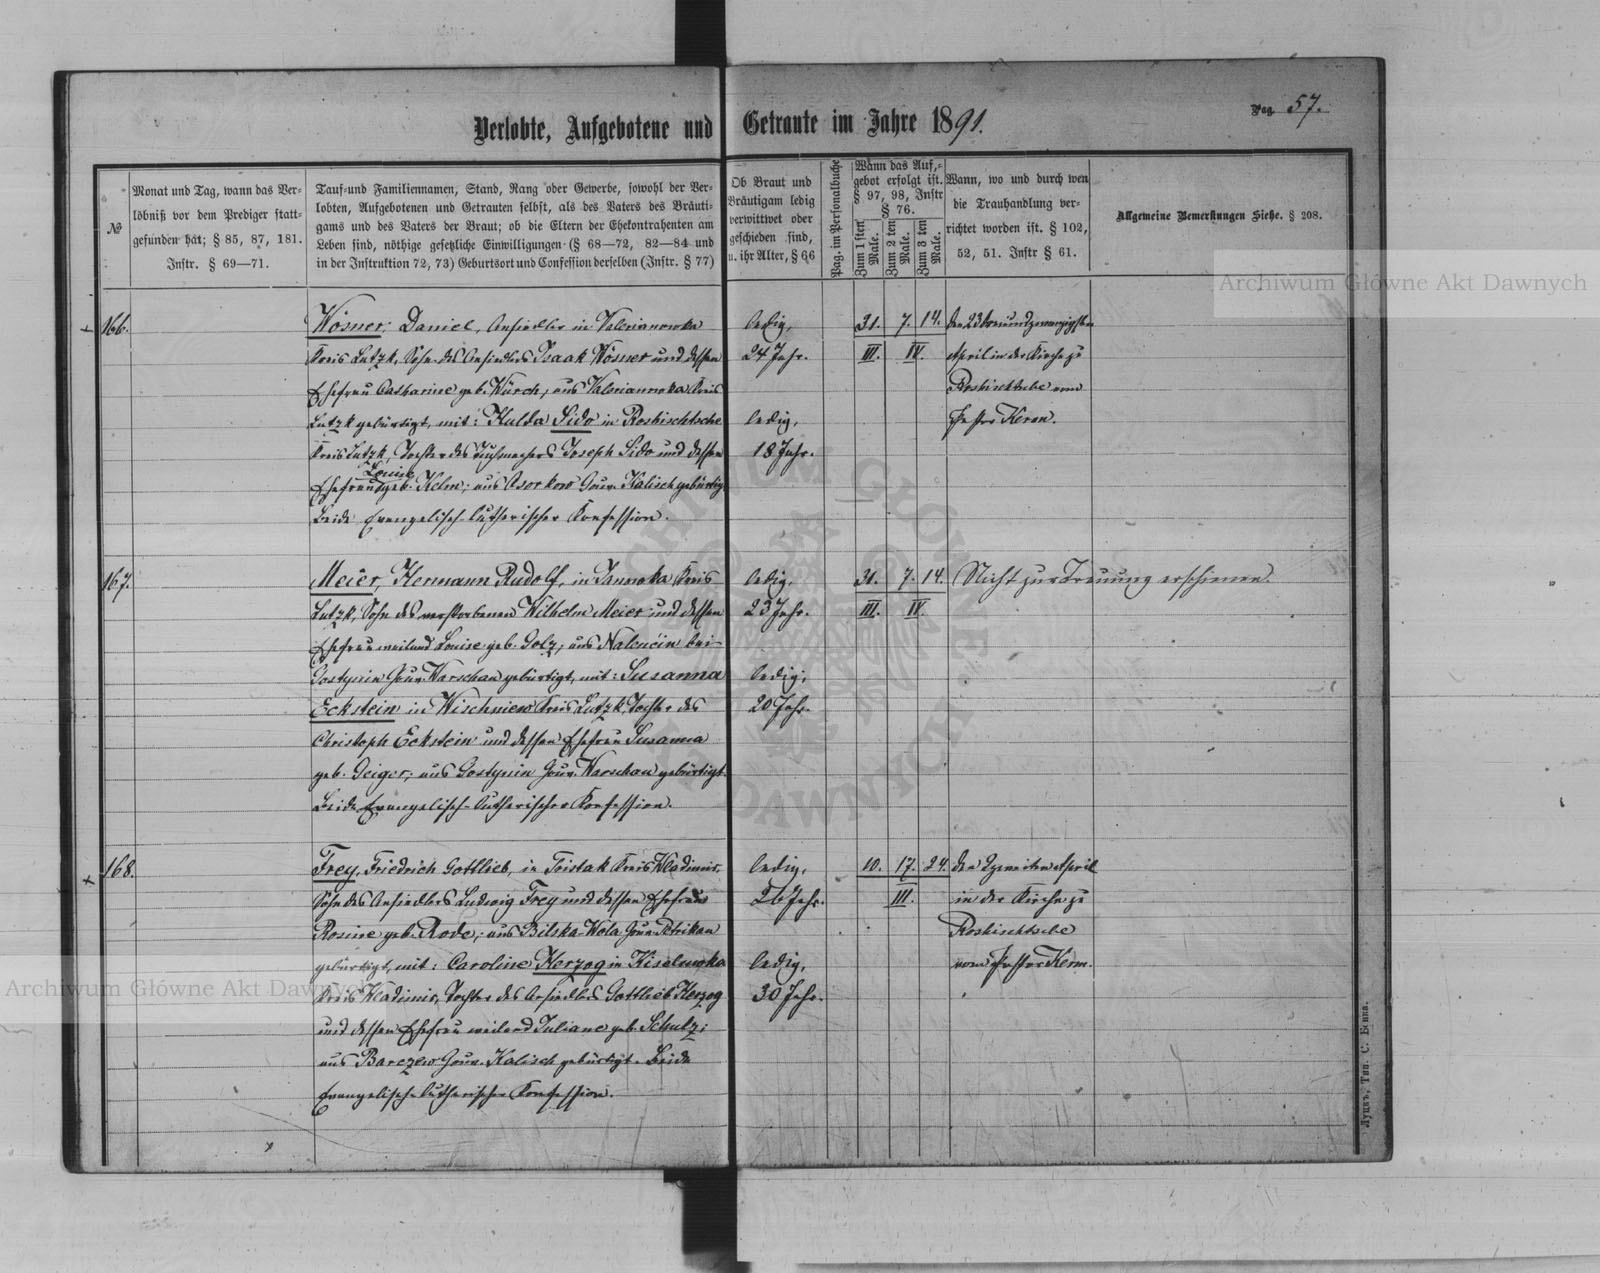 Pag. 57.
Verlobte, Aufgebotene und Getraute im Jahre 1891.
№
Monat und Tag, wann das Ver-
löbniß vor dem Prediger statt-
gefunden hat; § 85, 87, 181.
Instr. § 69—71.
Tauf- und Familiennamen, Stand, Rang oder Gewerbe, sowohl der Ver-
lobten, Aufgebotenen und Getrauten selbst, als des Vaters des Bräuti-
gams und des Vaters der Braut; ob die Eltern der Ehekontrahenten am
Leben sind, nöthige gesetzliche Einwilligungen (§ 68—72, 82—84 und
in der Instruktion 72, 73) Geburtsort und Confession derselben (Instr. § 77)
Ob Braut und
Bräutigam ledig
verwittwet oder
geschieden sind,
u. ihr Alter, § 66
Pag. im Personalbuche
Wann das Auf-
gebot erfolgt ist.
§ 97, 98, Instr
§ 76.
Zum 1 sten
Male.
Zum 2 ten
Male.
Zum 3 ten
Male.
Wann, wo und durch wen
die Trauhandlung ver-
richtet worden ist. § 102,
52, 51. Instr § 61.
Allgemeine Bemerkungen Siehe. § 208.
166.
Wösner, Daniel, Ansiedler in Valerianowka
Kreis Lutzk, Sohn des Ansiedlers Isaak Wösner und dessen
Ehefrau Catharine geb. Würch, aus Valerianowka Kreis
Lutzk gebürtigt, mit: Hulda Sido in Roshischtsche
Kreis Lutzk, Tochter des Tuchmachers Joseph Sido und dessen
Louise
Ehefrau geb. Helm; aus Osorkow Gouv. Kalisch gebürtig
Beide Evangelisch-Lutherischer Konfession.
ledig,
24 Jahr.
ledig,
18 Jahr.
31. 7. 14.
III. IV.
den 23 dreiundzwanzigsten
April in der Kirche zu
Roshischtsche vom
Pastor Kerm.
167.
Meier, Hermann Rudolf, in Janowka Kreis
Lutzk, Sohn des verstorbenen Wilhelm Meier und dessen
Ehefrau weiland Louise geb. Golz, aus bei
Gostynin Gouv. Warschau gebürtigt, mit: Susanna
Eckstein in Wischniew Kreis Lutzk, Tochter des
Christoph Eckstein und dessen Ehefrau Susanna
geb. Geiger; aus Gostynin Gouv. Warschau gebürtigt.
Beide Evangelisch-Lutherischer Konfession.
ledig,
23 Jahr.
ledig,
20 Jahr.
31. 7. 14.
III. IV
Nicht zur Trauung erschienen.
168.
Frey, Friedrich Gottlieb, in Tristak Kreis Wladimir,
Sohn des Ansiedlers Ludwig Frey und dessen Ehefrau
Rosine geb. Rode; aus Bilska-Wola Gouv. Petrikau
gebürtigt, mit: Caroline Herzog in Kiselewka
Kreis Wladimir, Tochter des Ansiedlers Gottlieb Herzog
und dessen Ehefrau weiland Juliane geb. Schulz;
aus Barczew Gouv. Kalisch gebürtigt. Beide
Evangelisch-Lutherischer Konfession.
ledig,
26 Jahr.
ledig,
30 Jahr.
10. 17. 24.
III.
den 2 zweiten April
in der Kirche zu
Roshischtsche
vom Pastor Kerm.
Луцкъ, Тип. С. Бика.
Archiwum Główne Akt Dawnych
Archiwum Główne Akt Dawnych